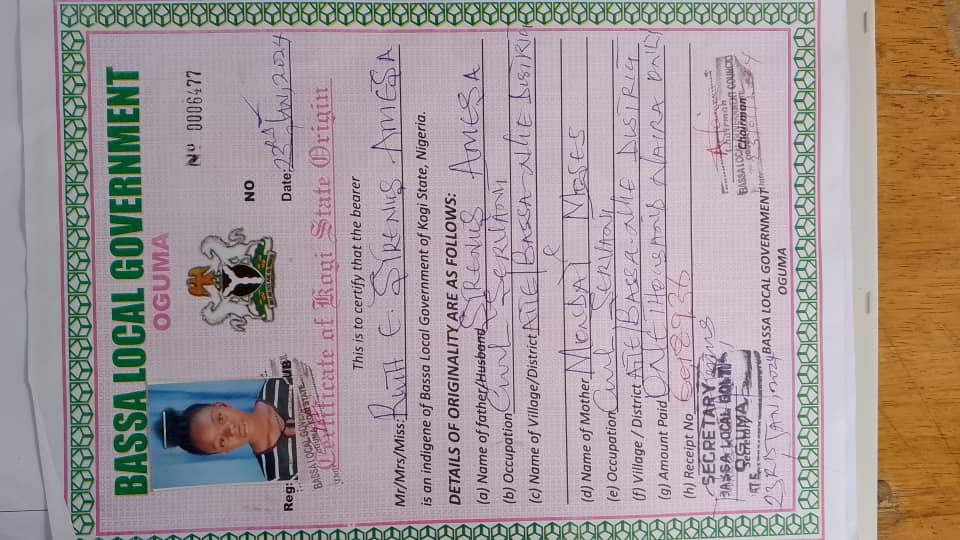 BASSA LOCAL GOVERNMENT
OGUMA
Nº 0006477
NO
Reg:
Date: 23rd Jan, 2024
Certificate of Kogi State Origin
This is to certify that the bearer
Mr/Mrs/Miss: RUTH E. SIRENUS AMESA
is an indigene of Bassa Local Government of Kogi State, Nigeria.
DETAILS OF ORIGINALITY ARE AS FOLLOWS:
(a) Name of father/Husband SIRENUS AMESA
(b) Occupation Civil Servant
(c) Name of Village/District ATE/BASSA-NHE DISTRICT
(d) Name of Mother MONDAY MOSES
(e) Occupation Civil Servant
(f) Village / District ATE/BASSA-NHE DISTRICT
(g) Amount Paid ONE Thousand NAIRA ONLY
(h) Receipt No
SECRETARY
BASSA LOCAL
OGUMA
Secretary
23RD JAN, 2024
Chairman
BASSA LOCAL GOVERNMENT
OGUMA